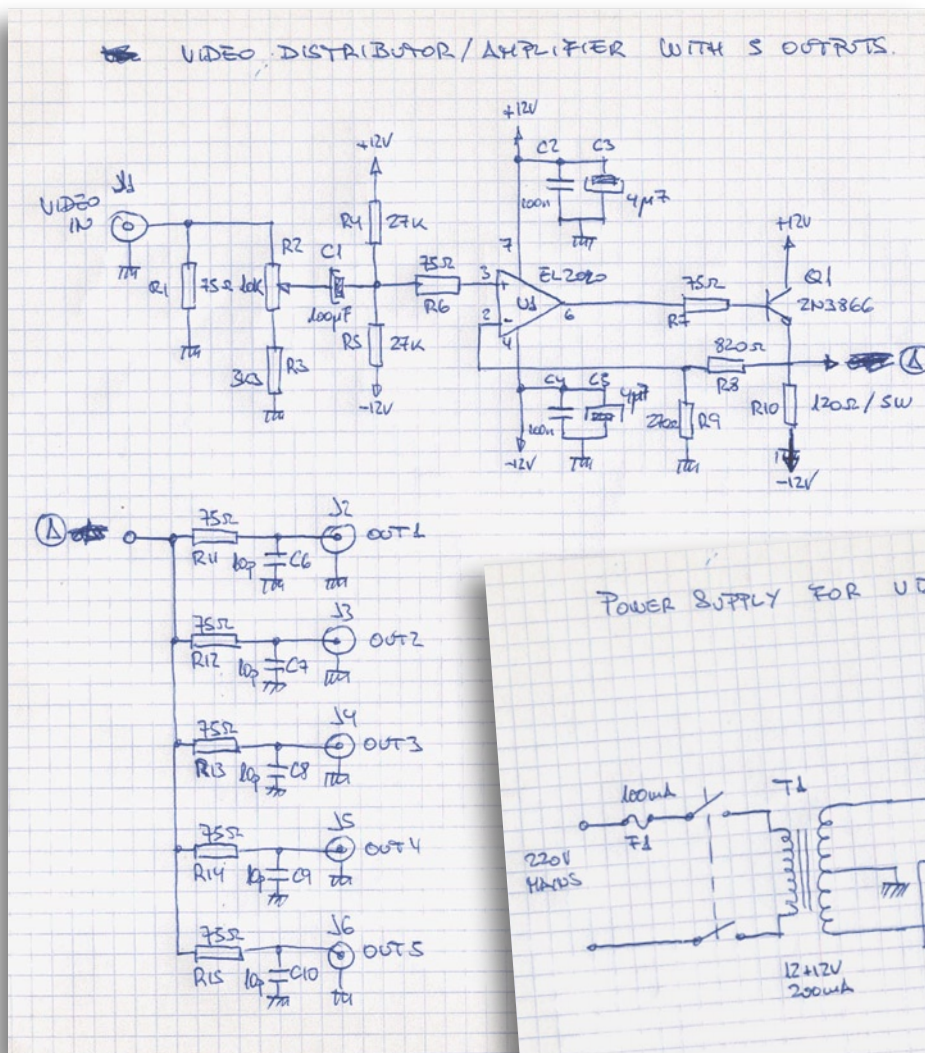 VIDEO DISTRIBUTOR/AMPLIFIER WITH 5 OUTPUTS.
VIDEO IN
J1
R1
75Ω
R2
10K
R3
3k3
C1
100μF
+12V
R4
27K
R5
27K
-12V
75Ω
R6
+12V
C2
100n
C3
4μ7
7
3
+
2
-
4
6
U1
EL2020
C4
100n
C5
4μ7
-12V
75Ω
R7
+12V
Q1
2N3866
820Ω
R8
270Ω
R9
R10
120Ω / 5W
-12V
A
A
75Ω
R11
10p
C6
J2
OUT1
75Ω
R12
10p
C7
J3
OUT2
75Ω
R13
10p
C8
J4
OUT3
75Ω
R14
10p
C9
J5
OUT4
75Ω
R15
10p
C10
J6
OUT5
POWER SUPPLY FOR
220V
MAINS
100mA
F1
T1
12+12V
200mA